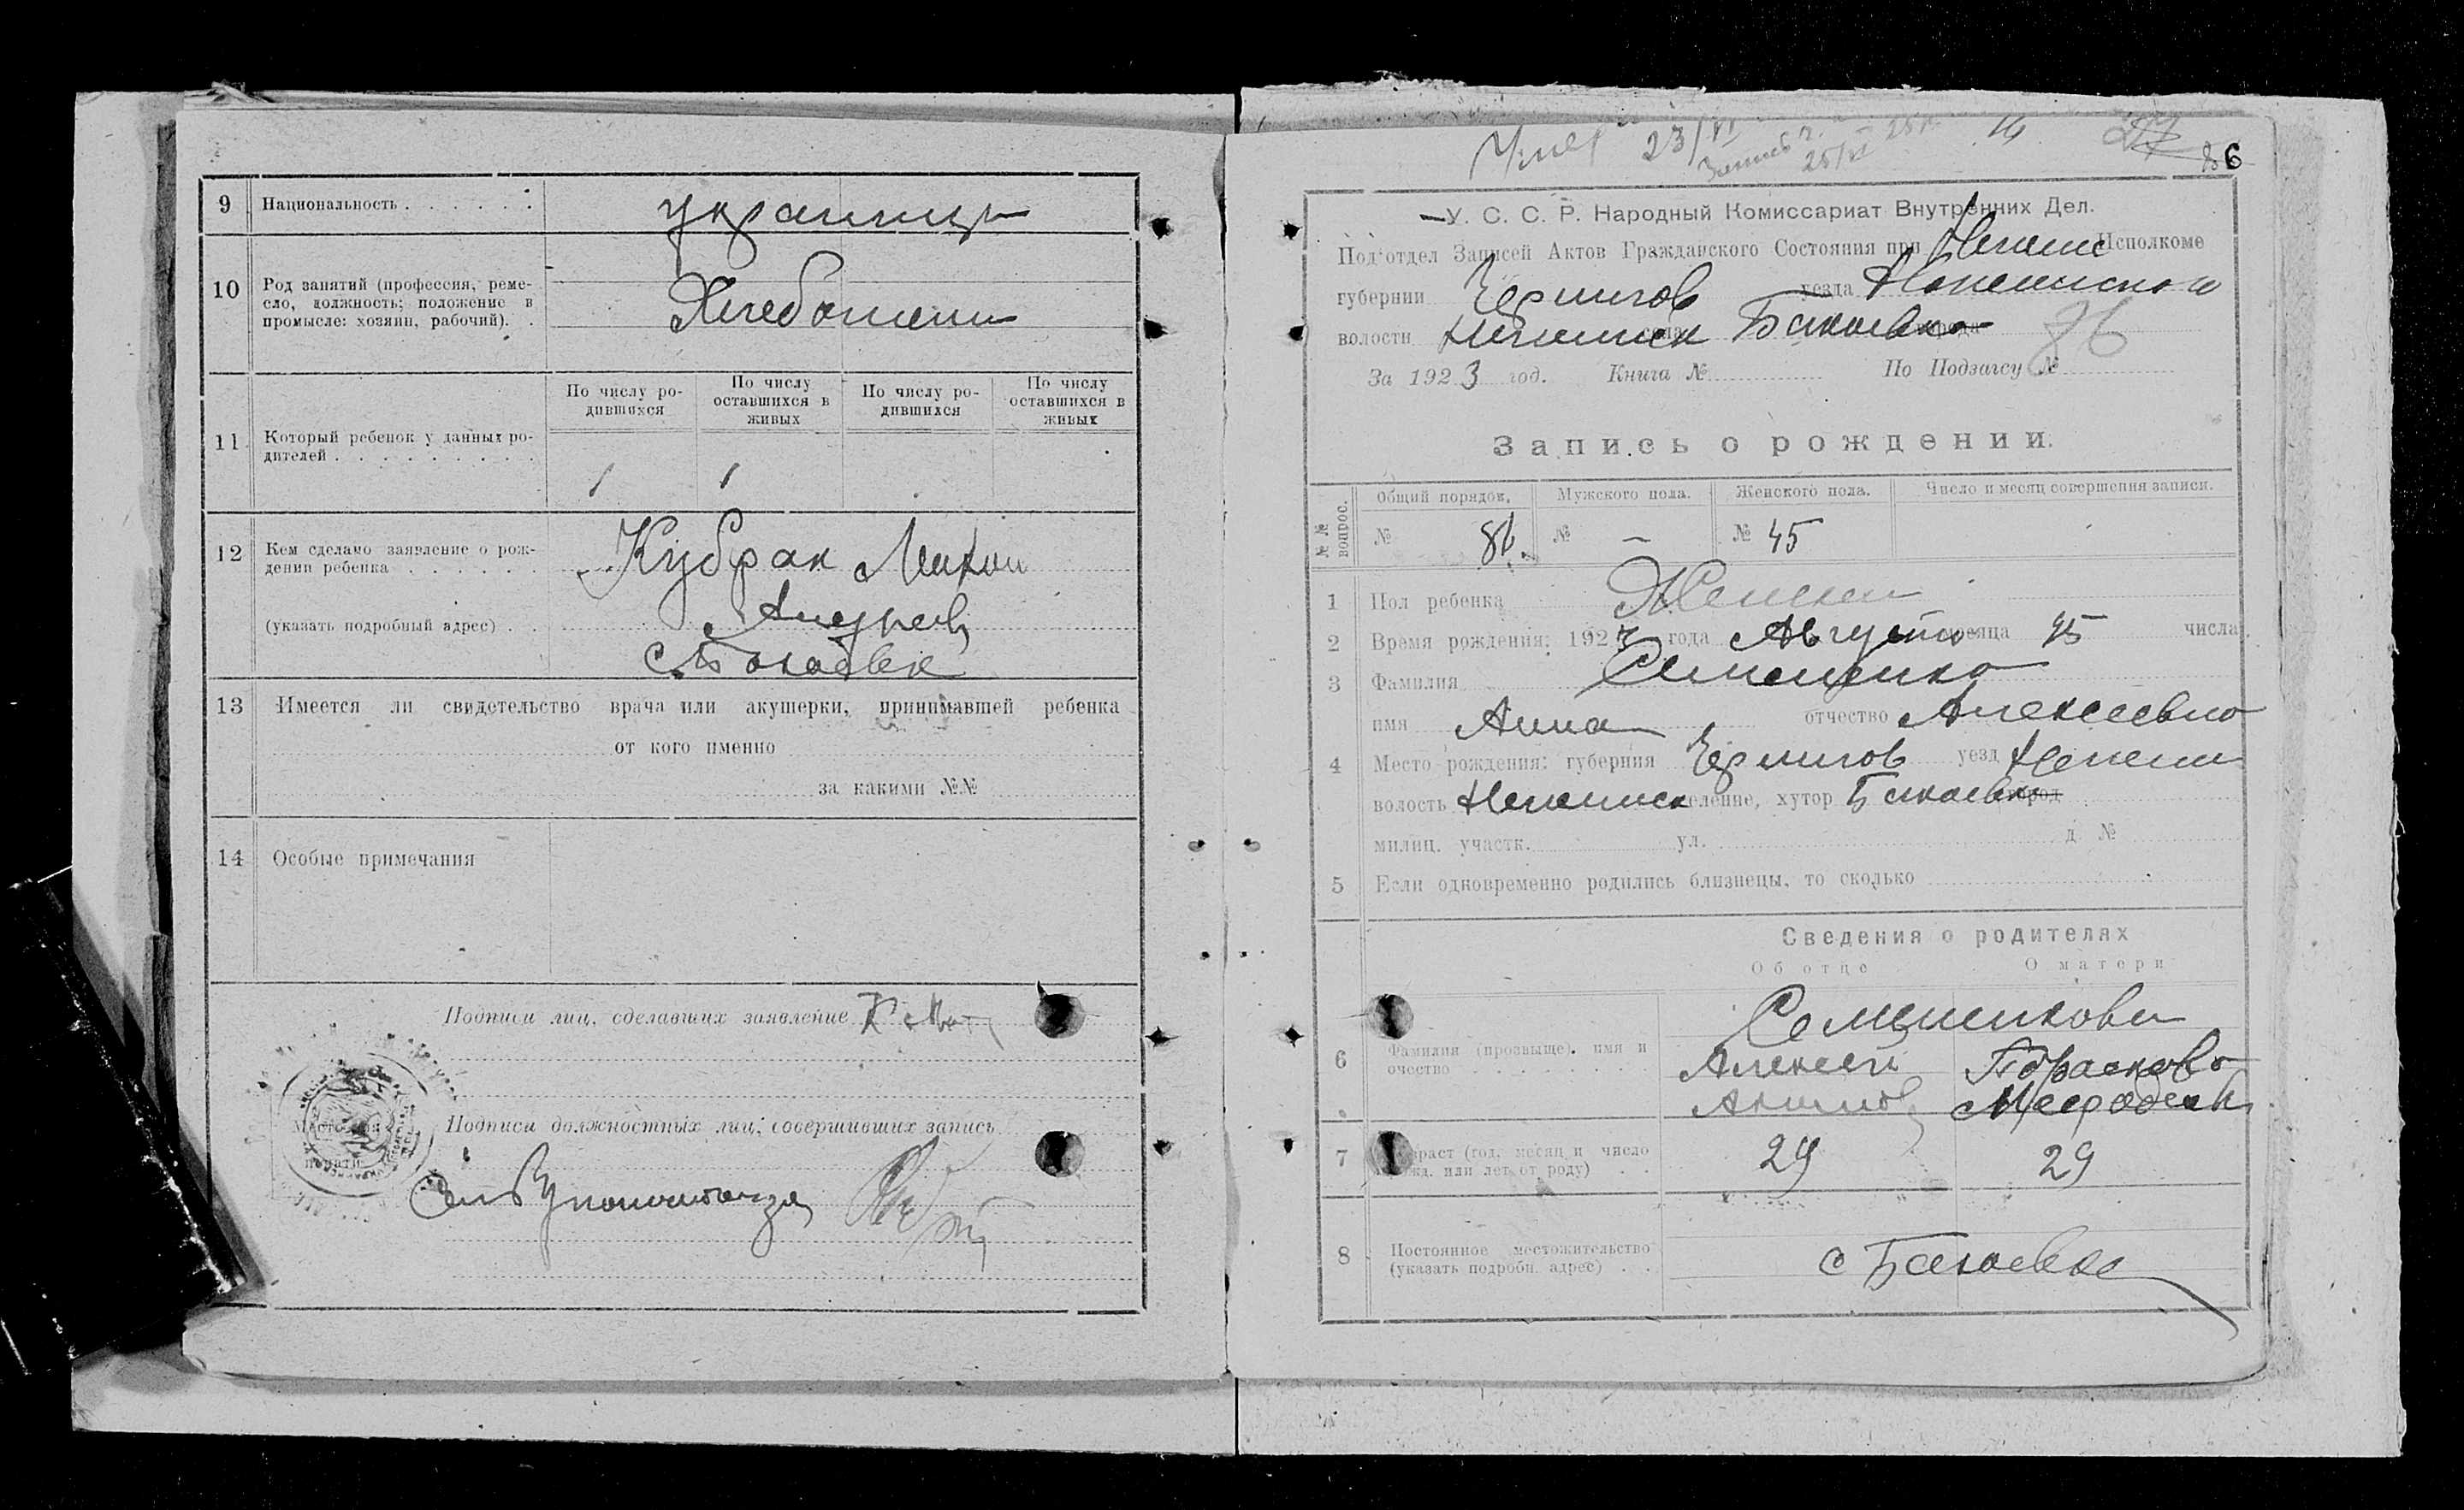 9 Национальность украинцы
10 Род занятий (профессия, реме-
сло, должность; положение в
промысле: хозяин, рабочий).
Хлебопашец
11 Который ребенок у данных ро-
дителей
По числу ро-
дившихся
По числу
оставшихся в
живых
По числу ро-
дившихся
По числу
оставшихся в
живых
1 1
12 Кем сделано заявление о рож-
дении ребенка
Кубрак
(указать подробный адрес)
Андреев
13 Имеется ли свидетельство врача или акушерки, принимавшей ребенка
от кого именно
за какими №№
14 Особые примечания
Подписи лиц, сделавших заявление
Подписи должностных лиц, совершивших запись
Место для
печати
23/VI
86
У. С. С. Р. Народный Комиссариат Внутренних Дел.
Подотдел Записей Актов Гражданского Состояния при Нежин Исполкоме
губернии Чернигов уезда Неженского
волости Неженск села Бакаевка города
86
За 1923 год. Книга № По Подзагсу №
Запись о рождении.
№№ вопрос.
Общий порядов. Мужского пола. Женского пола. Число и месяц совершения записи.
№ 86. № — № 45
1 Пол ребенка Женский
2 Время рождения: 1923 года Августа месяца 15 числа
3 Фамилия Семененко
имя Анна отчество Алексеевна
4 Место рождения: губерния Чернигов уезд Нежин
волость Неженск селение, хутор Бакаевка город
милиц. участк. ул. д №
5 Если одновременно родились близнецы, то сколько
Сведения о родителях
Об отце О матери
6 Фамилия (прозвыще). имя и
очество
Семененковы
Алексей
Акимов
7 Возраст (год, месяц и число
рожд. или лет от роду)
29 29
8 Постоянное местожительство
(указать подробн. адрес)
с Бакаевка